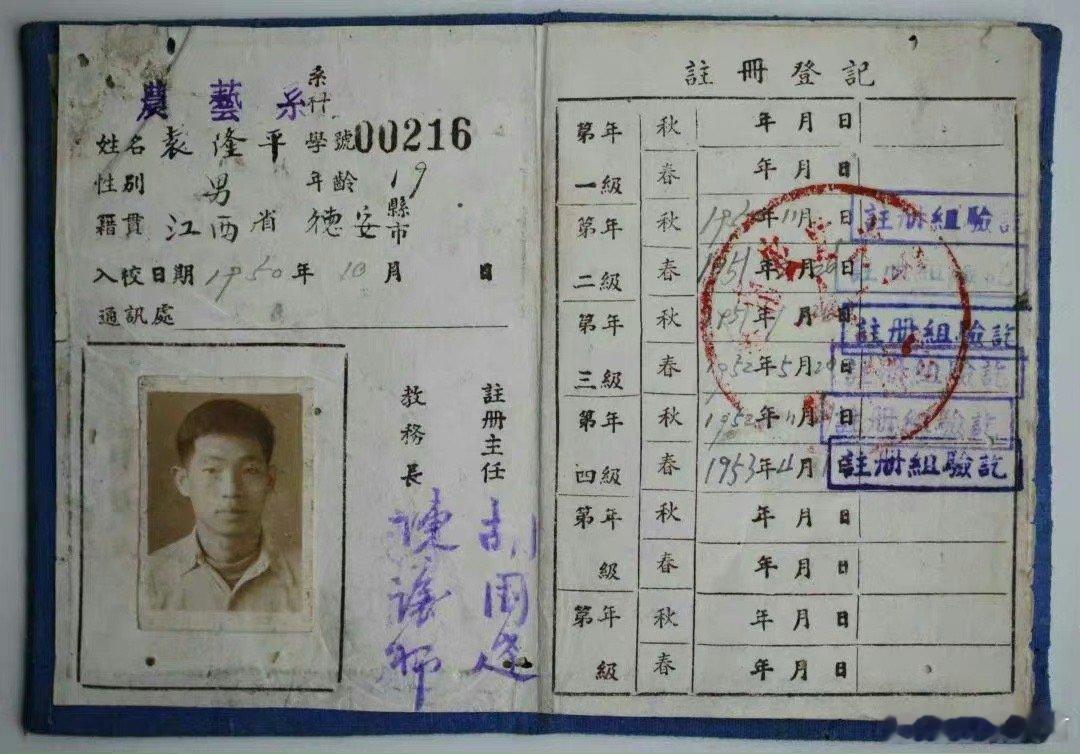 農藝系
系科
姓名 袁隆平 學號00216
性別 男 年齡 19
籍貫 江西省 德安 縣市
入校日期 1950年 10月 日
通訊處
教務長
註冊主任
註冊登記
第一年級 秋 年 月 日
春 年 月 日
第二年級 秋 年11月 日 註册組驗訖
春 1951年 月 日 註册組驗訖
第三年級 秋 1951年 月 日 註册組驗訖
春 1952年5月 日 註册組驗訖
第四年級 秋 1952年11月 日 註册組驗訖
春 1953年4月 註册組驗訖
第 年級 秋 年 月 日
春 年 月 日
第 年級 秋 年 月 日
春 年 月 日